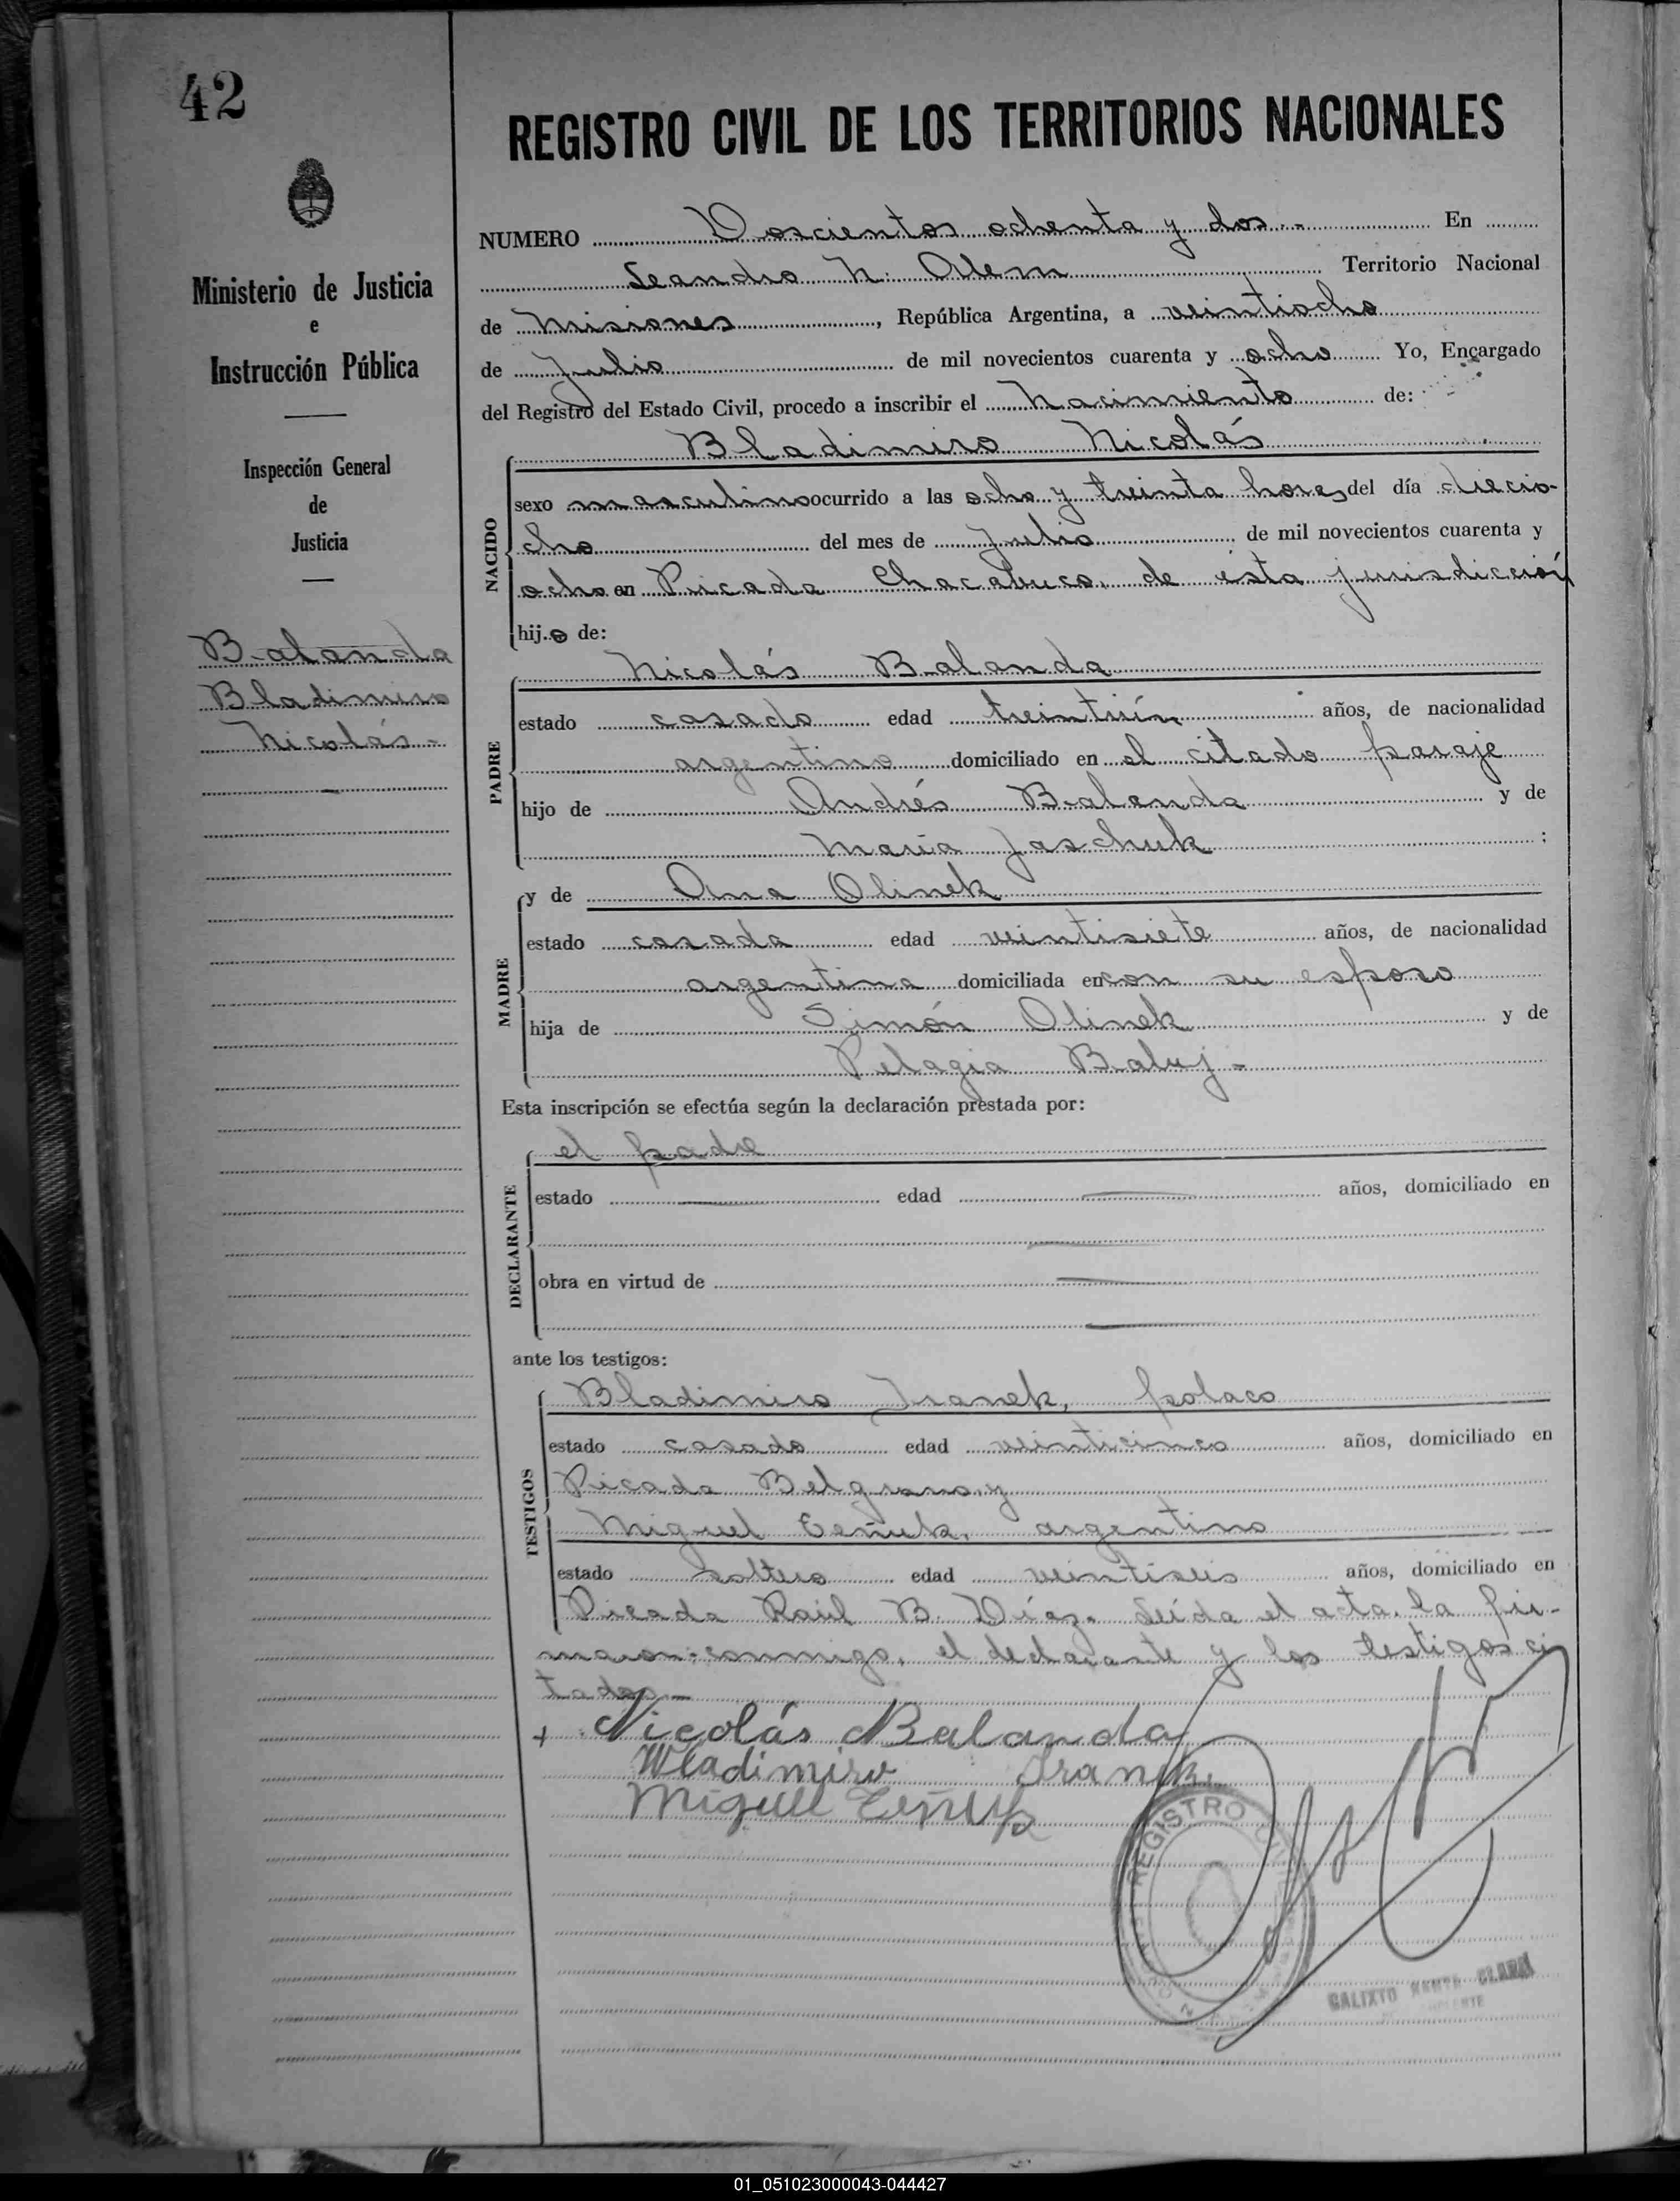 42
REGISTRO CIVIL DE LOS TERRITORIOS NACIONALES
Ministerio de Justicia
e
Instrucción Pública
Inspección General
de
Justicia
Balanda
Bladimiro
Nicolás-
NUMERO Doscientos ochenta y dos.- En
Leandro N. Alem Territorio Nacional
de Misiones, República Argentina, a veintiocho
de Julio de mil novecientos cuarenta y ocho Yo, Encargado
del Registro del Estado Civil, procedo a inscribir el Nacimiento de:
Bladimiro Nicolás
NACIDO
sexo masculino ocurrido a las ocho y treinta horas del día diecio-
cho del mes de Julio de mil novecientos cuarenta y
ocho en Picada Chacabuco, de esta jurisdicción
hijo de:
Nicolás Balanda
PADRE
estado casado edad treintiún años, de nacionalidad
argentino domiciliado en el citado paraje
hijo de Andrés Balanda y de
María Jaschuk ;
y de Ana Olinek
MADRE
estado casada edad veintisiete años, de nacionalidad
argentina domiciliada en con su esposo
hija de Simón Olinek y de
Pelagia Baluj-
Esta inscripción se efectúa según la declaración prestada por:
el padre
DECLARANTE
estado edad años, domiciliado en
obra en virtud de
ante los testigos:
Bladimiro Iranek, polaco
TESTIGOS
estado casado edad veinticinco años, domiciliado en
Picada Belgrano y
Miguel Eeñuk, argentino
estado soltero edad veintiseis años, domiciliado en
Picada Raúl B. Díaz. Leída el acta, la fir-
maron conmigo, el declarante y los testigos ci
tados-
+ Nicolás Balanda
Wladimiro Iranek
Miguel
REGISTRO CIVIL
CALIXTO SANTA CLARA
01_051023000043-044427